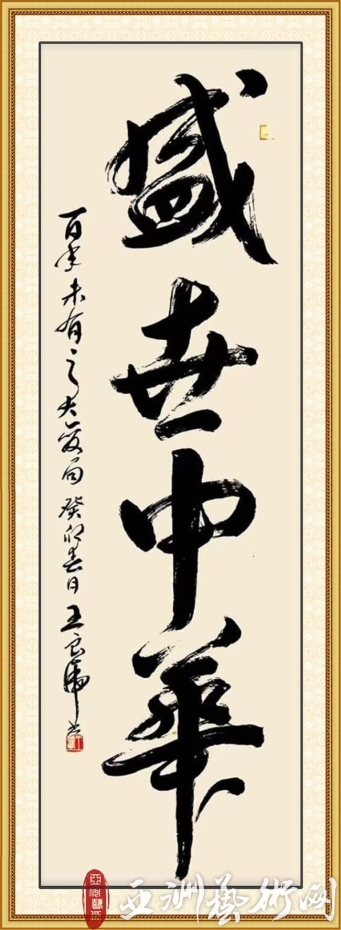 盛世中華
百年未有之大变局 癸卯春日 王良虎书
亚洲藝術网